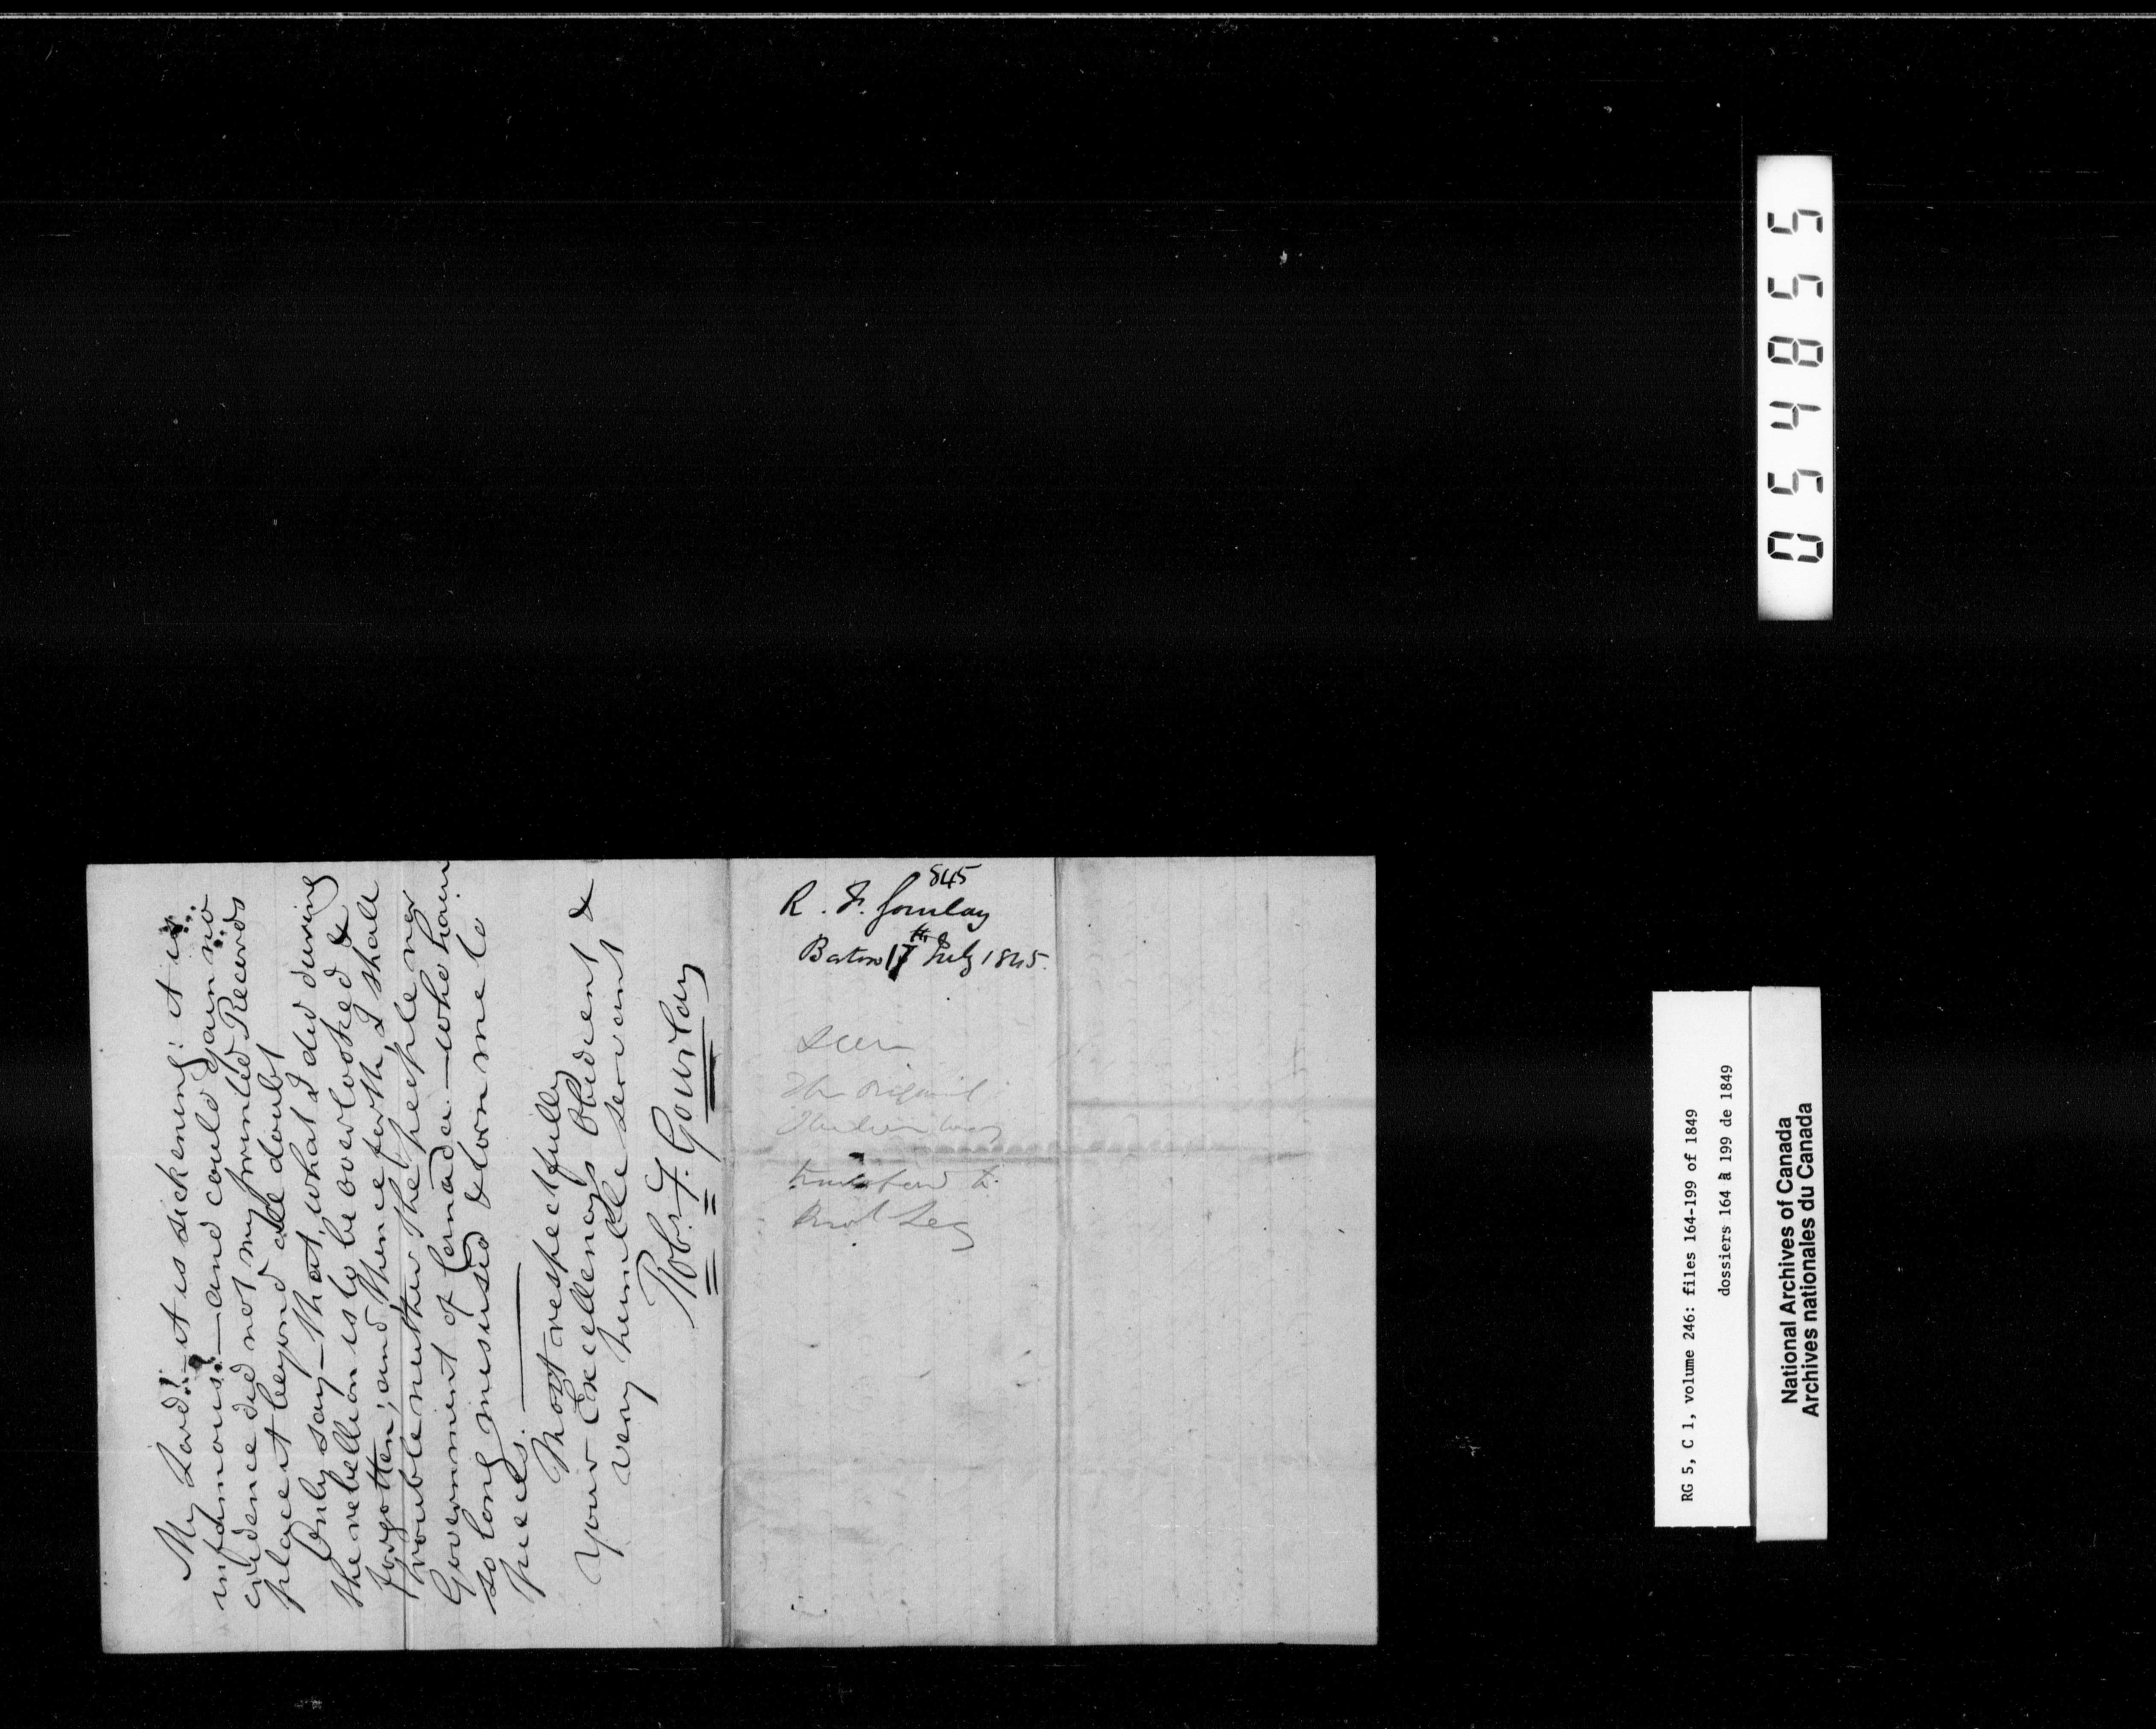 My Lord!:—it is sickening: it is
infamous:—and could gain no
credence did not my printed Records
place it beyond all doubt
Only say—that, what I did during
the rebellion is to be overlooked &
forgotten; and, thenceforth, I shall
trouble neither the people nor
Government of Canada—who have
so long misused & torn me to
pieces.
Most respectfully
Your Excellency's Obedient &
very humble servant
Robt. F. Gourlay
845
R. F. Gourlay
Boston 17th July 1845.
Seen
The original
transferred to
Prov Sec
054855
RG 5, C 1, volume 246: files 164-199 of 1849
dossiers 164 à 199 de 1849
National Archives of Canada
Archives nationales du Canada